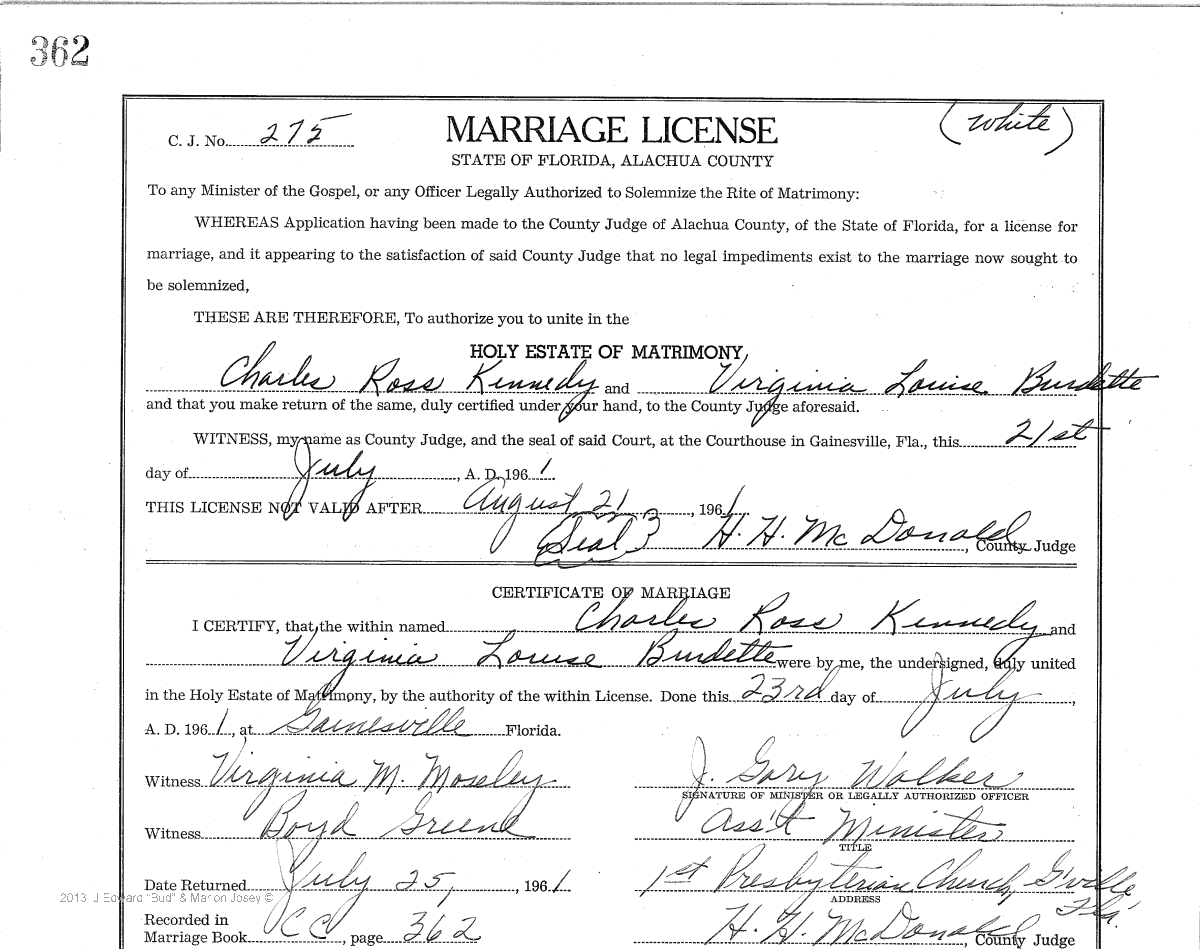 362
C. J. No. 275
MARRIAGE LICENSE
(White)
STATE OF FLORIDA, ALACHUA COUNTY
To any Minister of the Gospel, or any Officer Legally Authorized to Solemnize the Rite of Matrimony:
WHEREAS Application having been made to the County Judge of Alachua County, of the State of Florida, for a license for
marriage, and it appearing to the satisfaction of said County Judge that no legal impediments exist to the marriage now sought to
be solemnized,
THESE ARE THEREFORE, To authorize you to unite in the
HOLY ESTATE OF MATRIMONY,
Charles Ross Kennedy and Virginia Louise Burdette
and that you make return of the same, duly certified under your hand, to the County Judge aforesaid.
WITNESS, my name as County Judge, and the seal of said Court, at the Courthouse in Gainesville, Fla., this 21st
day of July, A. D. 1961.
THIS LICENSE NOT VALID AFTER August 21, 1961
Seal H. H. McDonald, County Judge
CERTIFICATE OF MARRIAGE
I CERTIFY, that the within named Charles Ross Kennedy and
Virginia Louise Burdette were by me, the undersigned, duly united
in the Holy Estate of Matrimony, by the authority of the within License. Done this 23rd day of July,
A. D. 1961, at Gainesville Florida.
Witness Virginia M. Moseley
J. Gary Walker
SIGNATURE OF MINISTER OR LEGALLY AUTHORIZED OFFICER
Witness Boyd Greene
Ass't Minister
TITLE
Date Returned July 25, 1961
1st Presbyterian Church, G'ville, Fla.
ADDRESS
2013 J Edward "Bud" & Marion Josey ©
Recorded in
Marriage Book CC, page 362
H. H. McDonald, County Judge